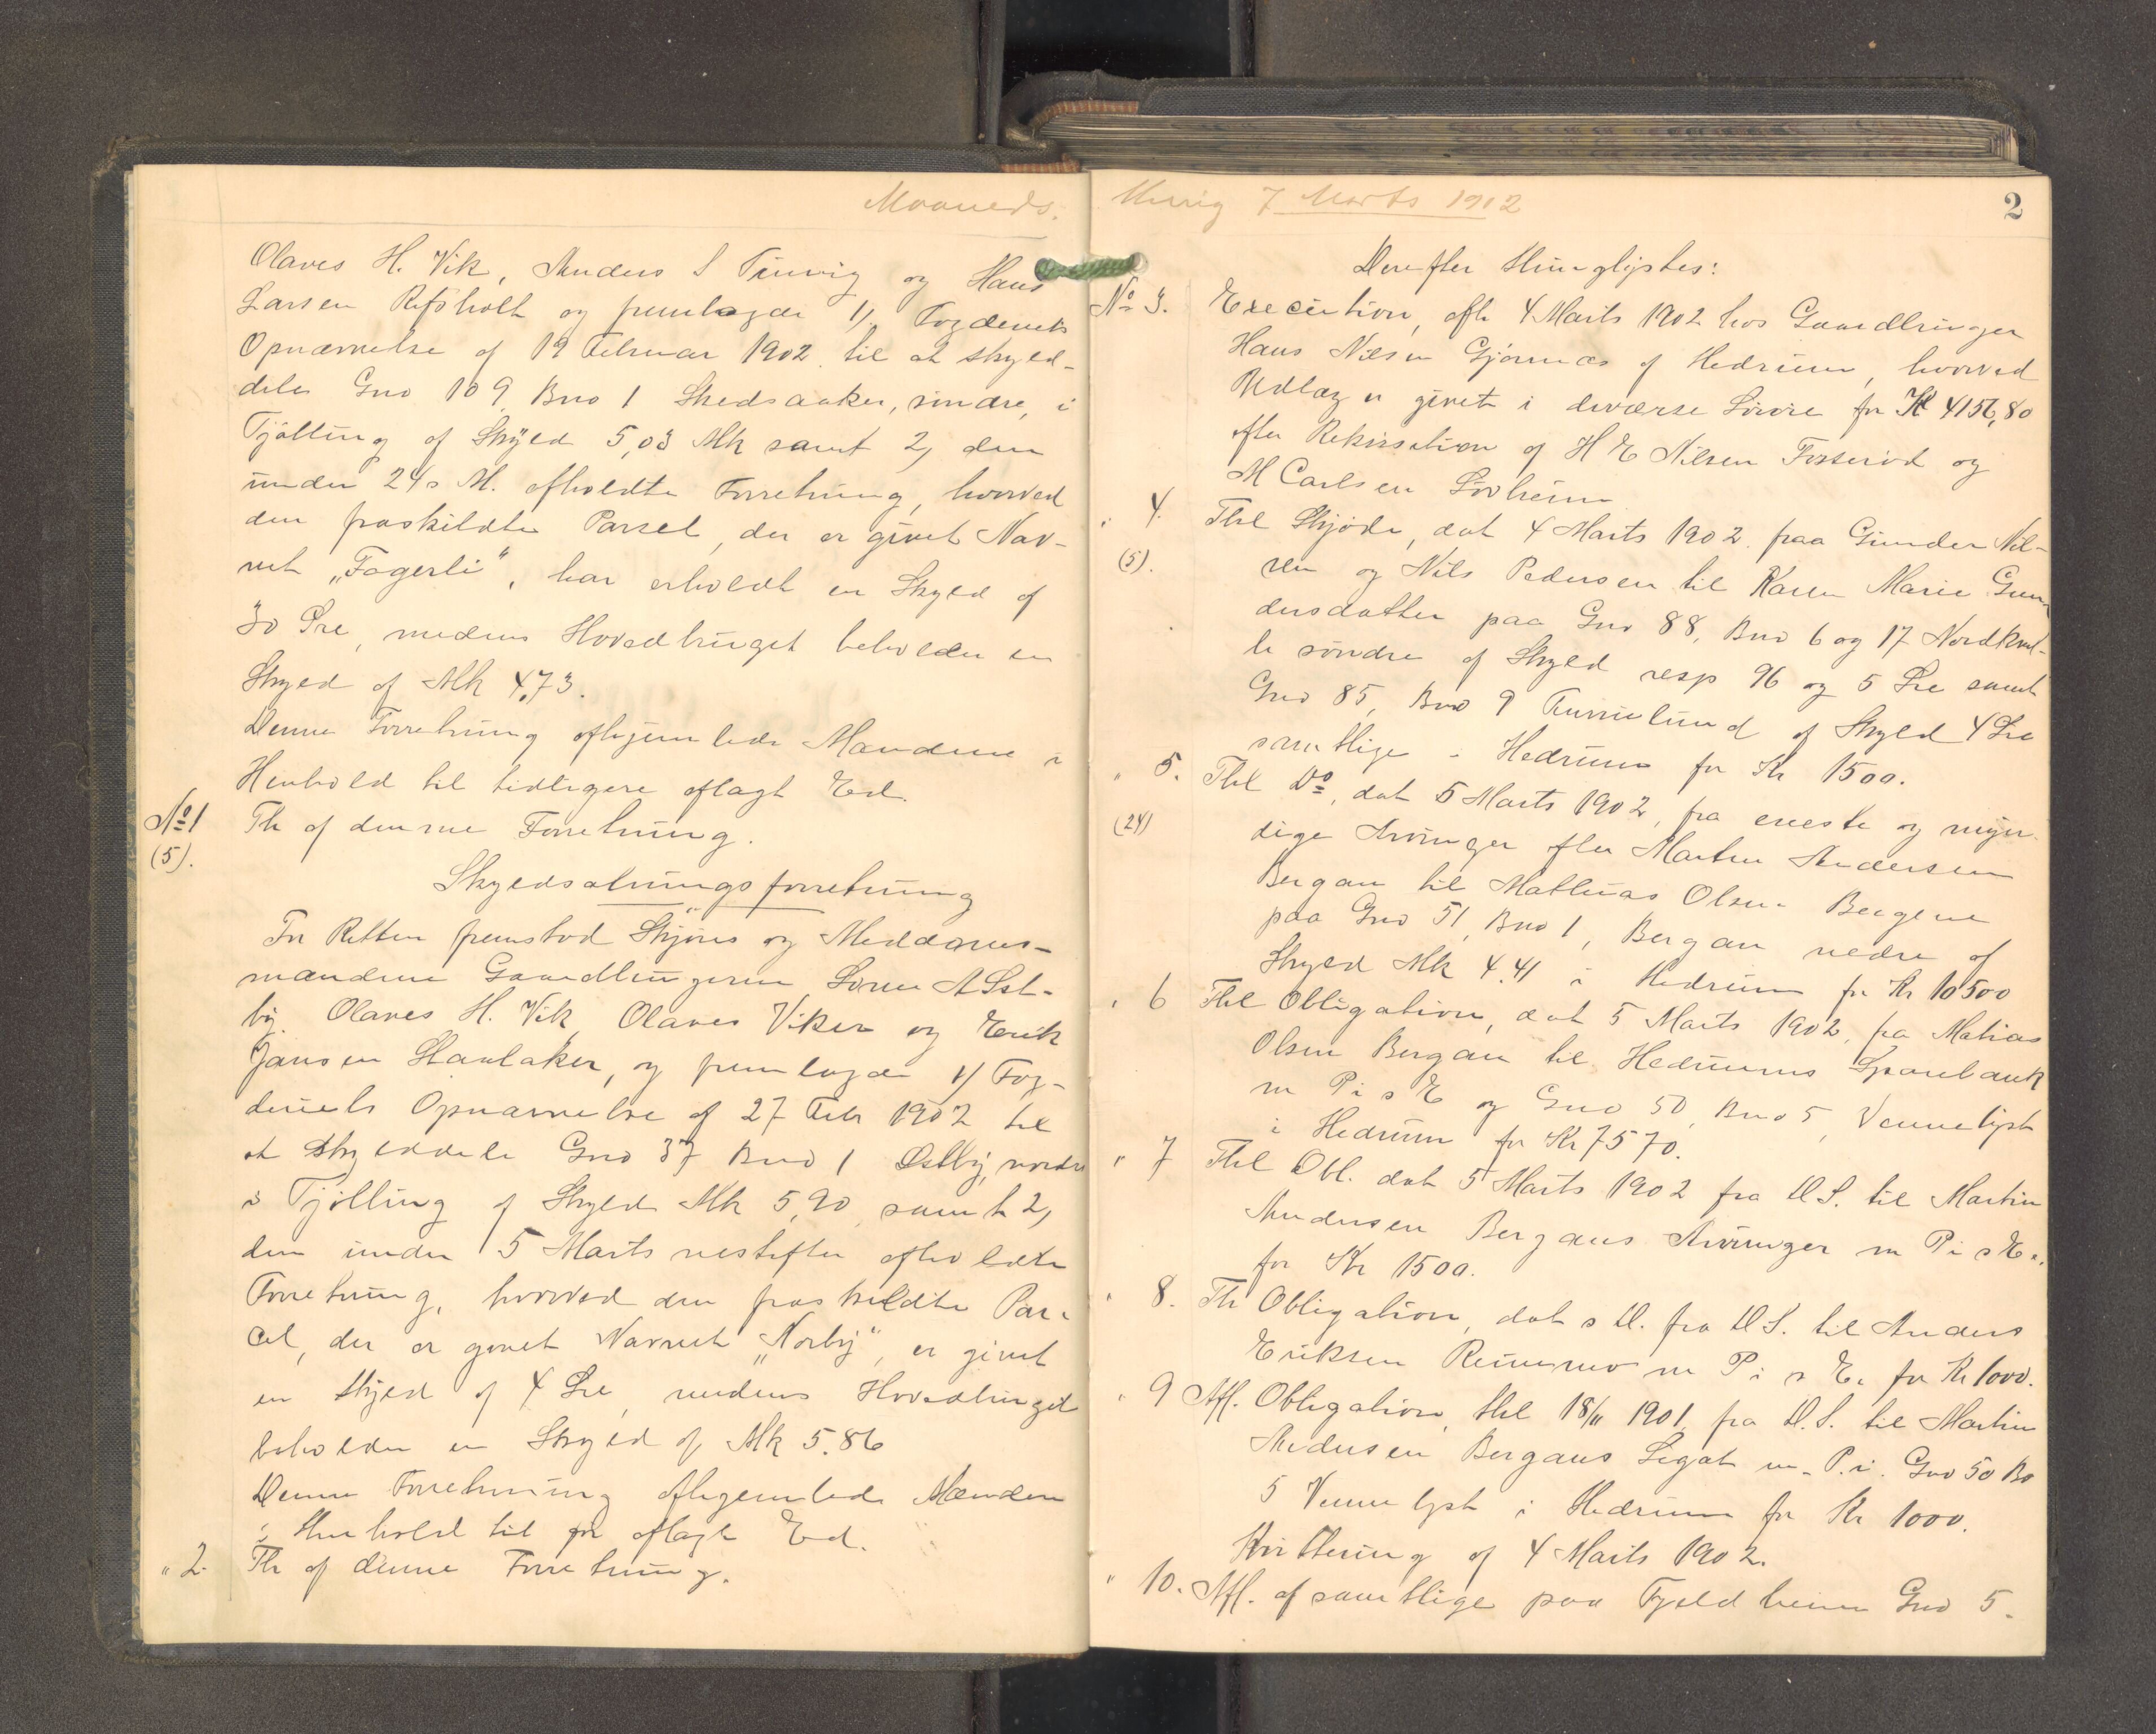 Maaneds.
Olaves H. Vik, Anders S Tinvig og Hans
Larsen Refsholt og fremlagde 1/. Fogderiets
Opnævnelse af 19 Februar 1902 til at skyld-
dele Gno 109 Bno 1 Skedsaaker, søndre, i
Tjølling af Skyld 5,03 Mk samt 2, den
under 24 s M. afholdte Forretning, hvorved
den fraskildte Parsel, der er givet Nav-
net „Fagerli“, har erholdt en Skyld af
30 Øre, medens Hovedbruget beholder en
Skyld af Mk 4,73.
Denne Forretning afhjemlede Mændene i
Henhold til tidligere aflagt Ed.
No 1 Th af denne Forretning.
(5).
Skyldsætningsforretning
For Retten fremstod Skjøns og Meddoms-
mændene Gaardbrugerne Søren A Øst-
by. Olaves H. Vik, Olaves Viker og Erik
Jansen Skaulaker, og fremlagde 1/ Fog-
deriets Opnævnelse af 27 Febr 1902 til
at skylddele Gno 37 Bno 1 Østby, nordre
i Tjølling af Skyld Mk 5,90 samt 2,
den under 5 Marts nestefter afholdte
Forretning, hvorved den fraskildte Par-
cel, der er givet Navnet „Norby“, er givet
en Skyld af 4 Øre, medens Hovedbruget
beholder en Skyld af Mk 5.86
Denne Forretning afhjemlede Mændene
i Henhold til før aflagt Ed.
" 2. Th af denne Forretning.
thing 7 Marts 1902
2
Derefter thinglystes:
No 3. Execution, afh 4 Marts 1902 hos Gaardbruger
Hans Nilsen Gjønnæs af Hedrum, hvorved
Udlæg er givet i diverse Løsøre for Kr 4156,80
efter Rekvisition af H E Nilsen Fosserød og
M Carlsen Løvheim
" 4. Thl Skjøde, dat 4 Marts 1902 fra Gunder Nil-
(5). sen og Nils Pedersen til Karen Marie Gun-
dersdatter paa Gno 88, Bno 6 og 17 Nordkvel-
le søndre af Skyld resp 96 og 5 Øre samt
Gno 85, Bno 9 Furrulund af Skyld 4 Øre
samtlige i Hedrum for Kr 1500.
" 5. Thl Do, dat 5 Marts 1902, fra eneste og myn-
(24) dige Arvinger efter Martin Andersen
Bergan til Mathias Olsen Bergene
paa Gno 51, Bno 1, Bergan nedre af
Skyld Mk 4.41 i Hedrum for Kr 10500
" 6 Thl Obligation, dat 5 Marts 1902, fra Matias
Olsen Bergan til Hedrums Sparebank
m P i s E og Gno 50, Bno 5, Vennelyst
i Hedrum for Kr 7570.
" 7 Thl Obl. dat 5 Marts 1902 fra D S. til Martin
Andersen Bergans Arvinger m P i s E.
for Kr 1500.
" 8. Th Obligation, dat s D. fra D S. til Anders
Eriksen Rimmo m P i s E. for Kr 1000.
" 9 Afl. Obligation, thl 18/11 1901, fra D. S. til Martin
Andersen Bergans Legat m. P. i. Gno 50 Bo
5 Vennelyst i Hedrum for Kr 1000.
Kvittering af 4 Marts 1902.
" 10. Afl. af samtlige paa Fjeldheim Gno 5-